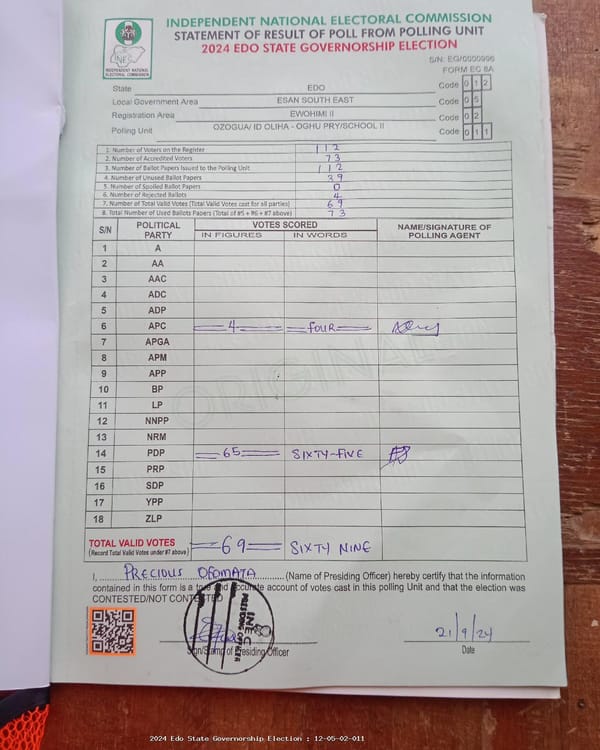 INDEPENDENT NATIONAL ELECTORAL COMMISSION
STATEMENT OF RESULT OF POLL FROM POLLING UNIT
2024 EDO STATE GOVERNORSHIP ELECTION
INEC
INDEPENDENT NATIONAL ELECTORAL COMMISSION
S/N: EG/0000996
FORM EC 8A
State EDO Code 0 1 2
Local Government Area ESAN SOUTH EAST Code 0 5
Registration Area EWOHIMI II Code 0 2
Polling Unit OZOGUA/ ID OLIHA - OGHU PRY/SCHOOL II Code 0 1 1
1. Number of Voters on the Register 112
2. Number of Accredited Voters 73
3. Number of Ballot Papers Issued to the Polling Unit 112
4. Number of Unused Ballot Papers 39
5. Number of Spoiled Ballot Papers 0
6. Number of Rejected Ballots 4
7. Number of Total Valid Votes (Total Valid Votes cast for all parties) 69
8. Total Number of Used Ballots Papers (Total of #5 + #6 + #7 above) 73
S/N POLITICAL PARTY VOTES SCORED NAME/SIGNATURE OF POLLING AGENT
IN FIGURES IN WORDS
1 A
2 AA
3 AAC
4 ADC
5 ADP
6 APC 4 FOUR
7 APGA
8 APM
9 APP
10 BP
11 LP
12 NNPP
13 NRM
14 PDP 65 SIXTY-FIVE
15 PRP
16 SDP
17 YPP
18 ZLP
ORIGINAL
TOTAL VALID VOTES 69 SIXTY NINE
(Record Total Valid Votes under #7 above)
I, PRECIOUS (Name of Presiding Officer) hereby certify that the information
contained in this form is a true and accurate account of votes cast in this polling Unit and that the election was
CONTESTED/NOT CONTESTED
INEC
PRESIDING OFFICER
21/9/24
Sign/Stamp of Presiding Officer Date
2024 Edo State Governorship Election : 12-05-02-011